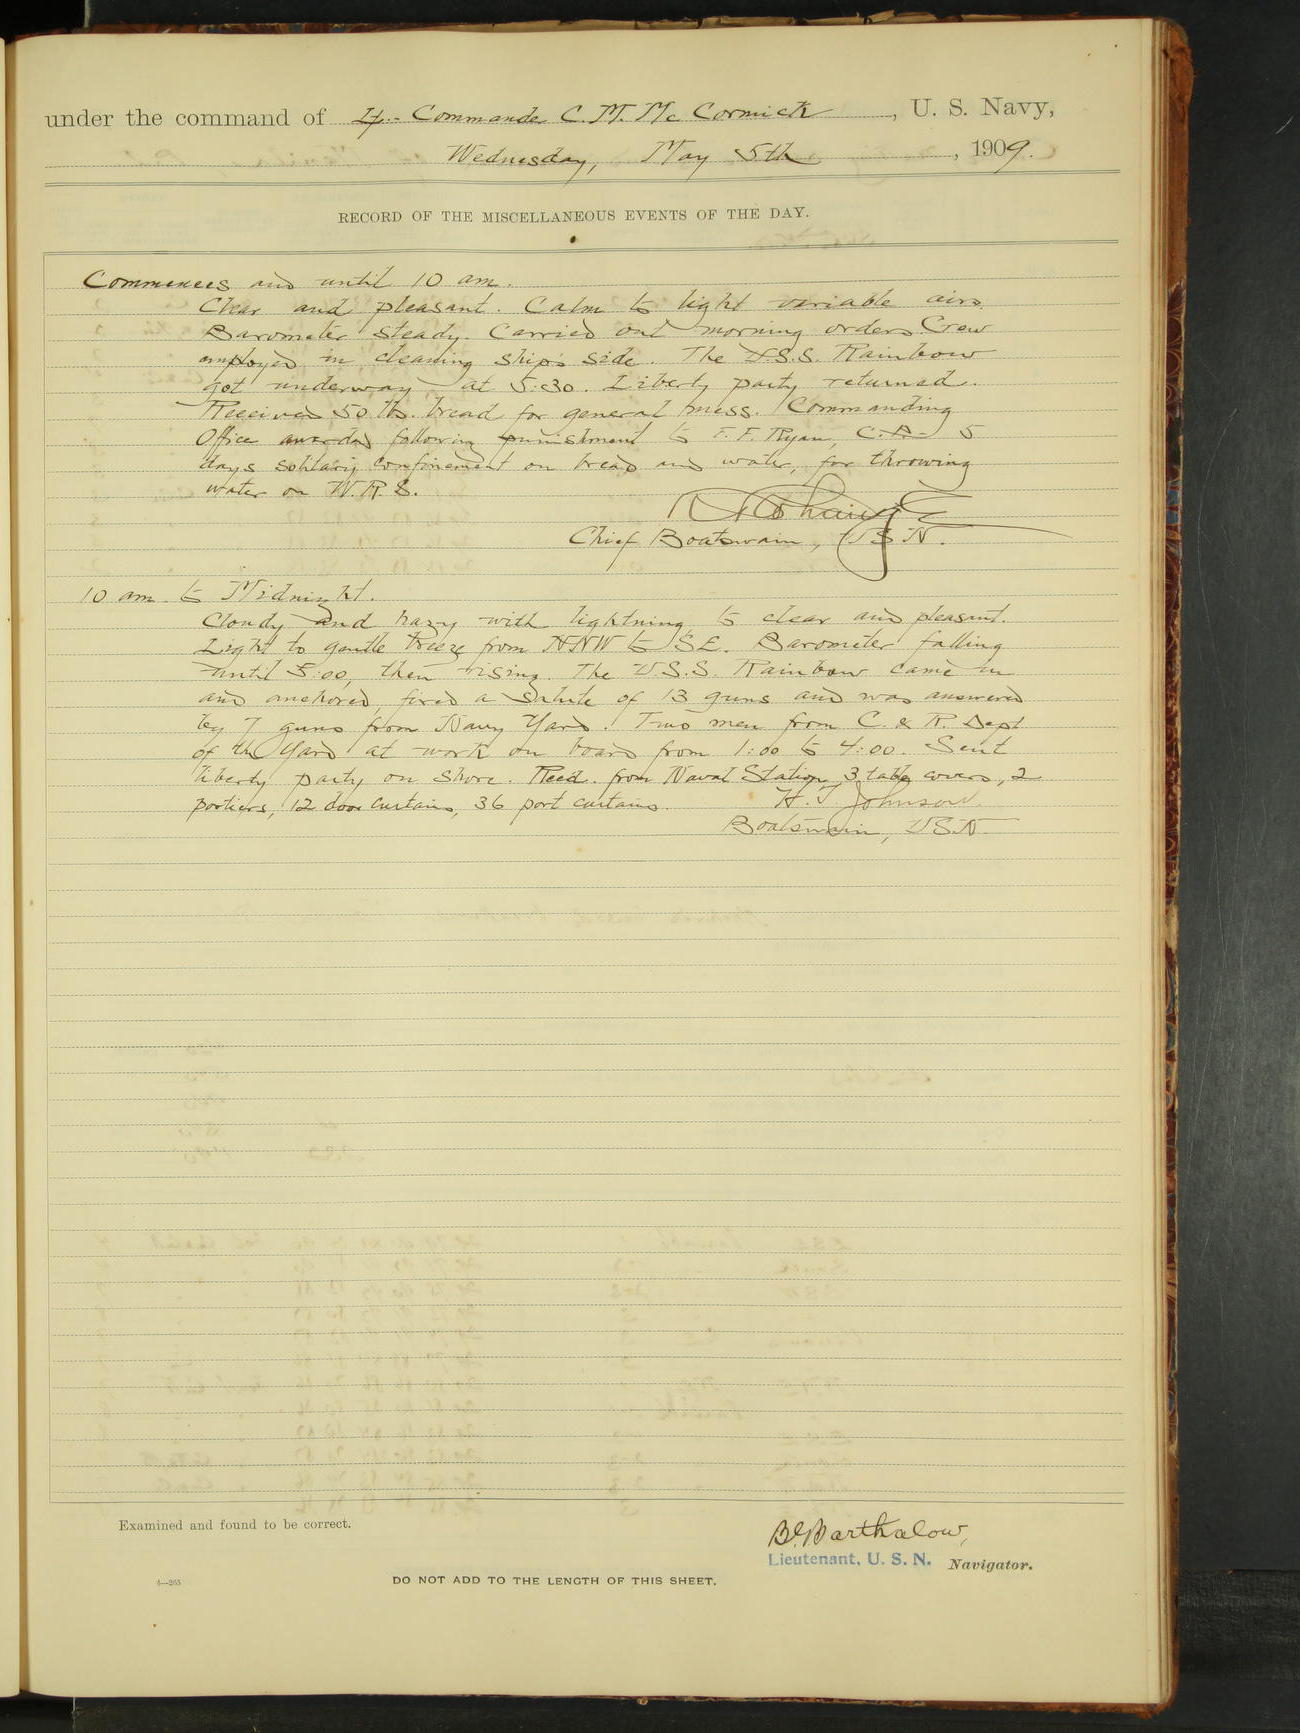 under the command of Lt.-Commander C. M. Mc Cormick, U. S. Navy,
Wednesday, May 5th, 1909.
RECORD OF THE MISCELLANEOUS EVENTS OF THE DAY.
Commences and until 10 am.
Clear and pleasant. Calm to light variable airs.
Barometer steady. Carried out morning orders Crew
employed in cleaning ship's side. The U.S.S. Rainbow
got underway at 5:30. Liberty party returned.
Received 50 lbs. bread for general mess. Commanding
Officer awarded following punishment to F. F. Ryan, 5
days solitary confinement on bread and water, for throwing
water on W.R.S.
Chief Boatswain, USN.
10 am to Midnight.
Cloudy and hazy with lightning to clear and pleasant.
Light to gentle breeze from NNW to SE. Barometer falling
until 5:00, then rising. The U.S.S. Rainbow came in
and anchored, fired a salute of 13 guns and was answered
by 7 guns from Navy Yard. Two men from C. & R. Dept
of the Yard at work on board from 1:00 to 4:00. Sent
liberty party on shore. Recd. from Naval Station 3 table covers, 2
portiers, 12 door curtains, 36 port curtains.
H. T. Johnson.
Boatswain, USN
Examined and found to be correct.
Barthalow,
Lieutenant, U. S. N. Navigator.
DO NOT ADD TO THE LENGTH OF THIS SHEET.